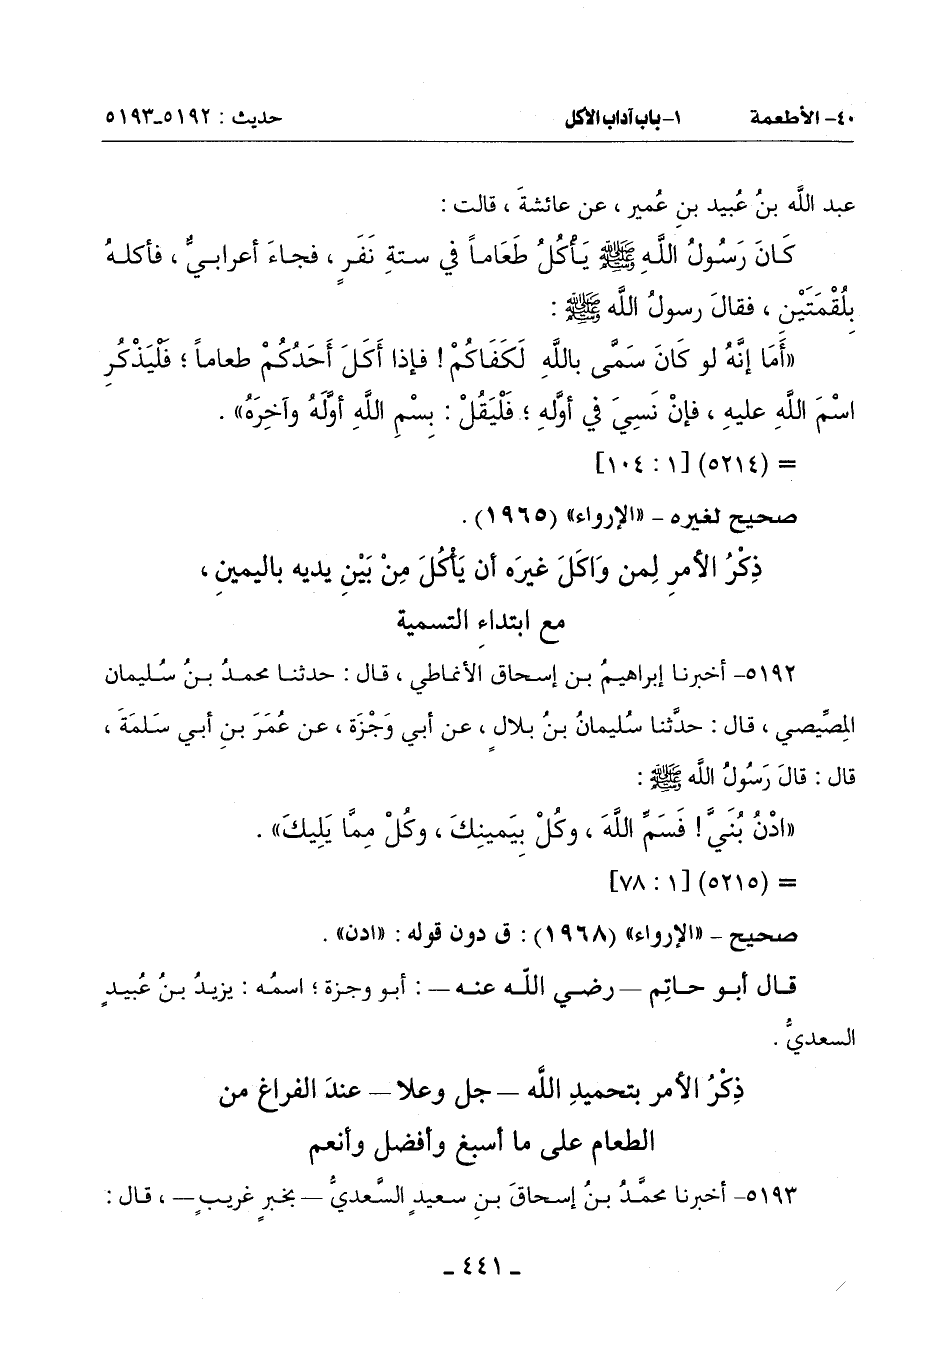 ٤٠- الأطعمة ١- باب آداب الأكل حديث : ٥١٩٢-٥١٩٣
عبد اللَّه بنُ عُبيد بنِ عُمير ، عن عائشةَ ، قالت :
كَانَ رَسُولُ اللَّهِ ﷺ يَأْكُلُ طَعَاماً في ستةِ نَفَرٍ ، فجاءَ أعرابيٌّ ، فأكلهُ
بِلُقْمَتَيْنِ ، فقالَ رسولُ اللَّه ﷺ :
«أَمَا إنَّهُ لو كَانَ سَمَّى باللَّهِ لَكَفَاكُمْ! فإذا أَكَلَ أَحَدُكُمْ طعاماً ؛ فَلْيَذْكُرِ
اسْمَ اللَّهِ عليهِ ، فإنْ نَسِيَ في أوَّلهِ ؛ فَلْيَقُلْ : بِسْمِ اللَّهِ أوَّلَهُ وآخِرَهُ» .
= (٥٢١٤) [١ : ١٠٤]
صحيح لغيره - «الإرواء» (١٩٦٥) .
ذِكْرُ الأمرِ لِمن وَاكَلَ غيرَه أن يَأْكُلَ مِنْ بَيْنِ يديه باليمينِ ،
مع ابتداءِ التسمية
٥١٩٢- أخبرنا إبراهيمُ بن إسحاق الأنماطي ، قال : حدثنا محمدُ بنُ سُليمان
المِصِّيصي ، قال : حدَّثنا سُليمانُ بنُ بلالٍ ، عن أبي وَجْزَة ، عن عُمَرَ بنِ أبي سَلمَةَ ،
قال : قالَ رَسُولُ اللَّه ﷺ :
«ادْنُ بُنَيَّ! فَسَمِّ اللَّهَ ، وكُلْ بِيَمينِكَ ، وكُلْ مِمَّا يَلِيكَ» .
= (٥٢١٥) [١ : ٧٨]
صحيح - «الإرواء» (١٩٦٨) : ق دون قوله : «ادن» .
قال أبو حاتِم — رضي اللَّه عنه — : أبو وجزة ؛ اسمُه : يزيدُ بنُ عُبيدٍ
السعديُّ .
ذِكْرُ الأمر بتحميدِ اللَّه — جل وعلا — عندَ الفراغِ من
الطعام على ما أسبغ وأفضل وأنعم
٥١٩٣- أخبرنا محمَّدُ بنُ إسحاقَ بنِ سعيدٍ السَّعديُّ — بخبرٍ غريبٍ — ، قال :
- ٤٤١ -